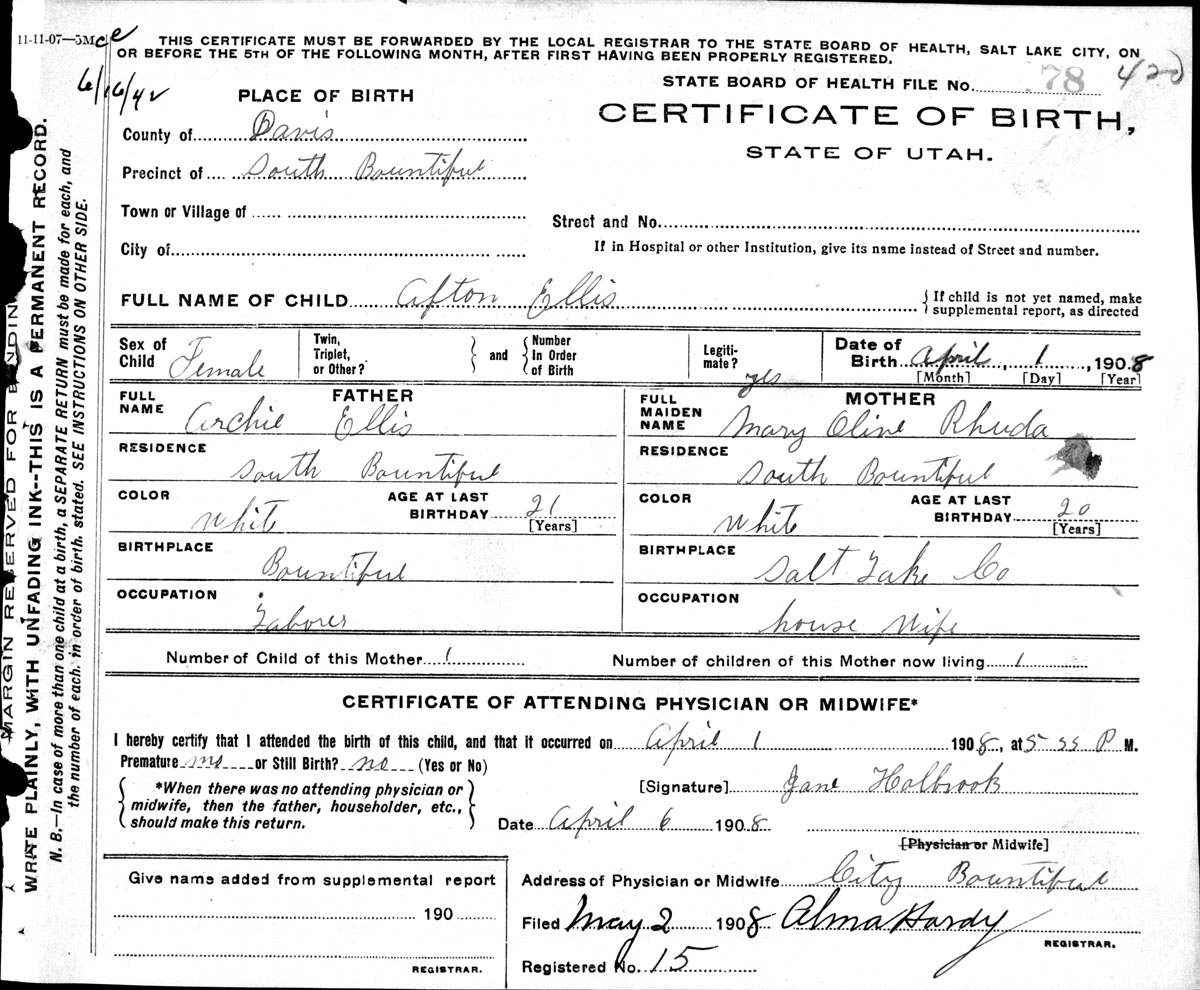 11-11-07—5M ce
THIS CERTIFICATE MUST BE FORWARDED BY THE LOCAL REGISTRAR TO THE STATE BOARD OF HEALTH, SALT LAKE CITY, ON
OR BEFORE THE 5TH OF THE FOLLOWING MONTH, AFTER FIRST HAVING BEEN PROPERLY REGISTERED.
6/16/42
STATE BOARD OF HEALTH FILE No. 78 420
PLACE OF BIRTH
CERTIFICATE OF BIRTH,
STATE OF UTAH.
County of Davis
Precinct of South Bountiful
Town or Village of
Street and No.
City of
If in Hospital or other Institution, give its name instead of Street and number.
FULL NAME OF CHILD Afton Ellis
{ If child is not yet named, make
supplemental report, as directed
Sex of Child Female
Twin, Triplet, or Other? } and { Number In Order of Birth
Legiti- mate? yes
Date of Birth April, 1, 1908
[Month] [Day] [Year]
FATHER
FULL NAME Archie Ellis
RESIDENCE South Bountiful
COLOR White AGE AT LAST BIRTHDAY 21 [Years]
BIRTHPLACE Bountiful
OCCUPATION Laborer
MOTHER
FULL MAIDEN NAME Mary Oline Rhuda
RESIDENCE South Bountiful
COLOR White AGE AT LAST BIRTHDAY 20 [Years]
BIRTHPLACE Salt Lake Co
OCCUPATION house Wife
Number of Child of this Mother 1 Number of children of this Mother now living 1
CERTIFICATE OF ATTENDING PHYSICIAN OR MIDWIFE*
I hereby certify that I attended the birth of this child, and that it occurred on April 1 1908, at 5 P M.
Premature no or Still Birth? no (Yes or No)
{ *When there was no attending physician or
midwife, then the father, householder, etc.,
should make this return. }
[Signature] Jane Holbrook
Date April 6 1908
[Physician or Midwife]
Give name added from supplemental report
190
REGISTRAR.
Address of Physician or Midwife City Bountiful
Filed May 2 1908 Alma Hardy
REGISTRAR.
Registered No. 15
MARGIN RESERVED FOR BINDIN
WRITE PLAINLY, WITH UNFADING INK--THIS IS A PERMANENT RECORD.
N. B.—In case of more than one child at a birth, a SEPARATE RETURN must be made for each, and
the number of each, in order of birth, stated. SEE INSTRUCTIONS ON OTHER SIDE.